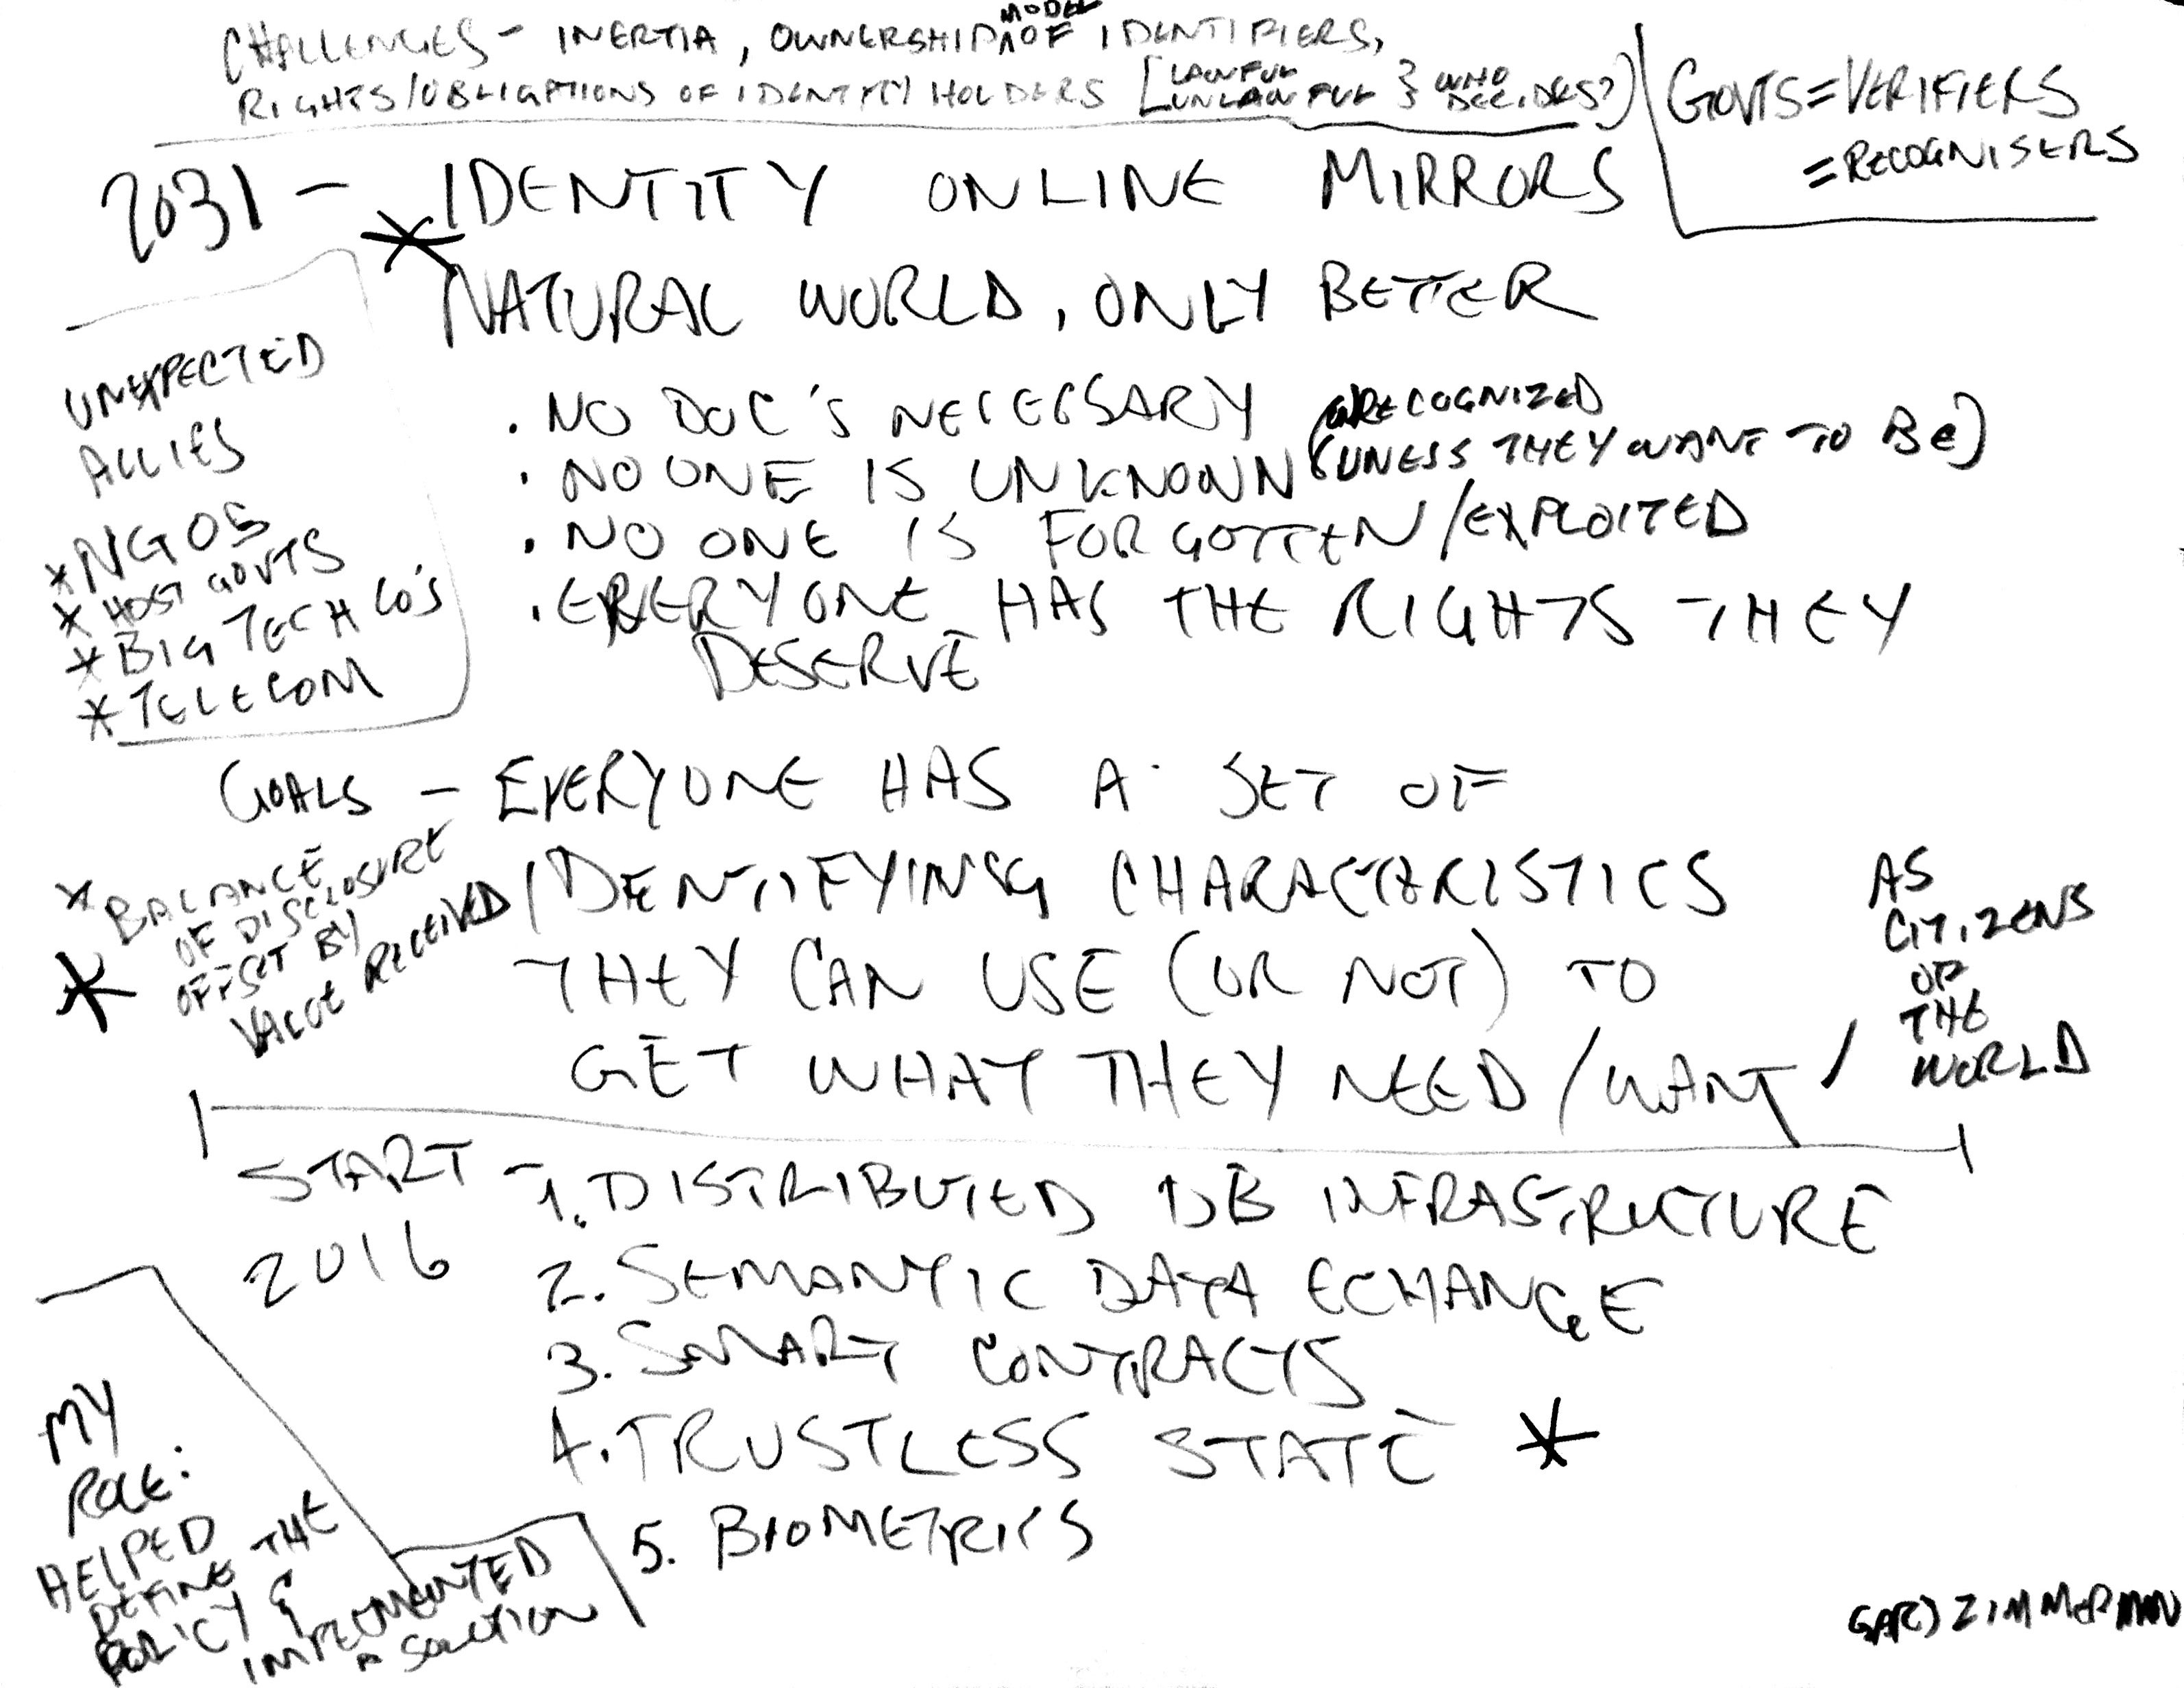 CHALLENGES - INERTIA, OWNERSHIP MODEL OF IDENTIFIERS,
RIGHTS/OBLIGATIONS OF IDENTITY HOLDERS [LAWFUL UNLAWFUL } WHO DECIDES?)
GOVTS = VERIFIERS
= RECOGNISERS
2031 - * IDENTITY ONLINE MIRRORS
NATURAL WORLD, ONLY BETTER
UNEXPECTED
ALLIES
* NGOS
* HOST GOVTS
* BIG TECH CO'S
* TELECOM
. NO DOC'S NECECSSARY
. NO ONE IS UNKNOWN (UNRECOGNIZED
(UNESS THEY WANT TO BE)
. NO ONE IS FORGOTTEN/EXPLOITED
. EVERYONE HAS THE RIGHTS THEY
DESERVE
GOALS - EVERYONE HAS A SET OF
IDENTIFYING CHARACTERISTICS
THEY CAN USE (OR NOT) TO
GET WHAT THEY NEED / WANT /
AS
CITIZENS
OF
THE
WORLD
* BALANCE
OF DISCLOSURE
OFFSET BY
VALUE RECEIVED
*
START 2016 - 1. DISTRIBUTED DB INFRASTRUCTURE
2. SEMANTIC DATA ECHANGE
3. SMART CONTRACTS
4. TRUSTLESS STATE *
5. BIOMETRICS
MY
ROLE:
HELPED
DEFINE THE
POLICY &
IMPLEMENTED
A SOLUTION
GARY ZIMMERMAN